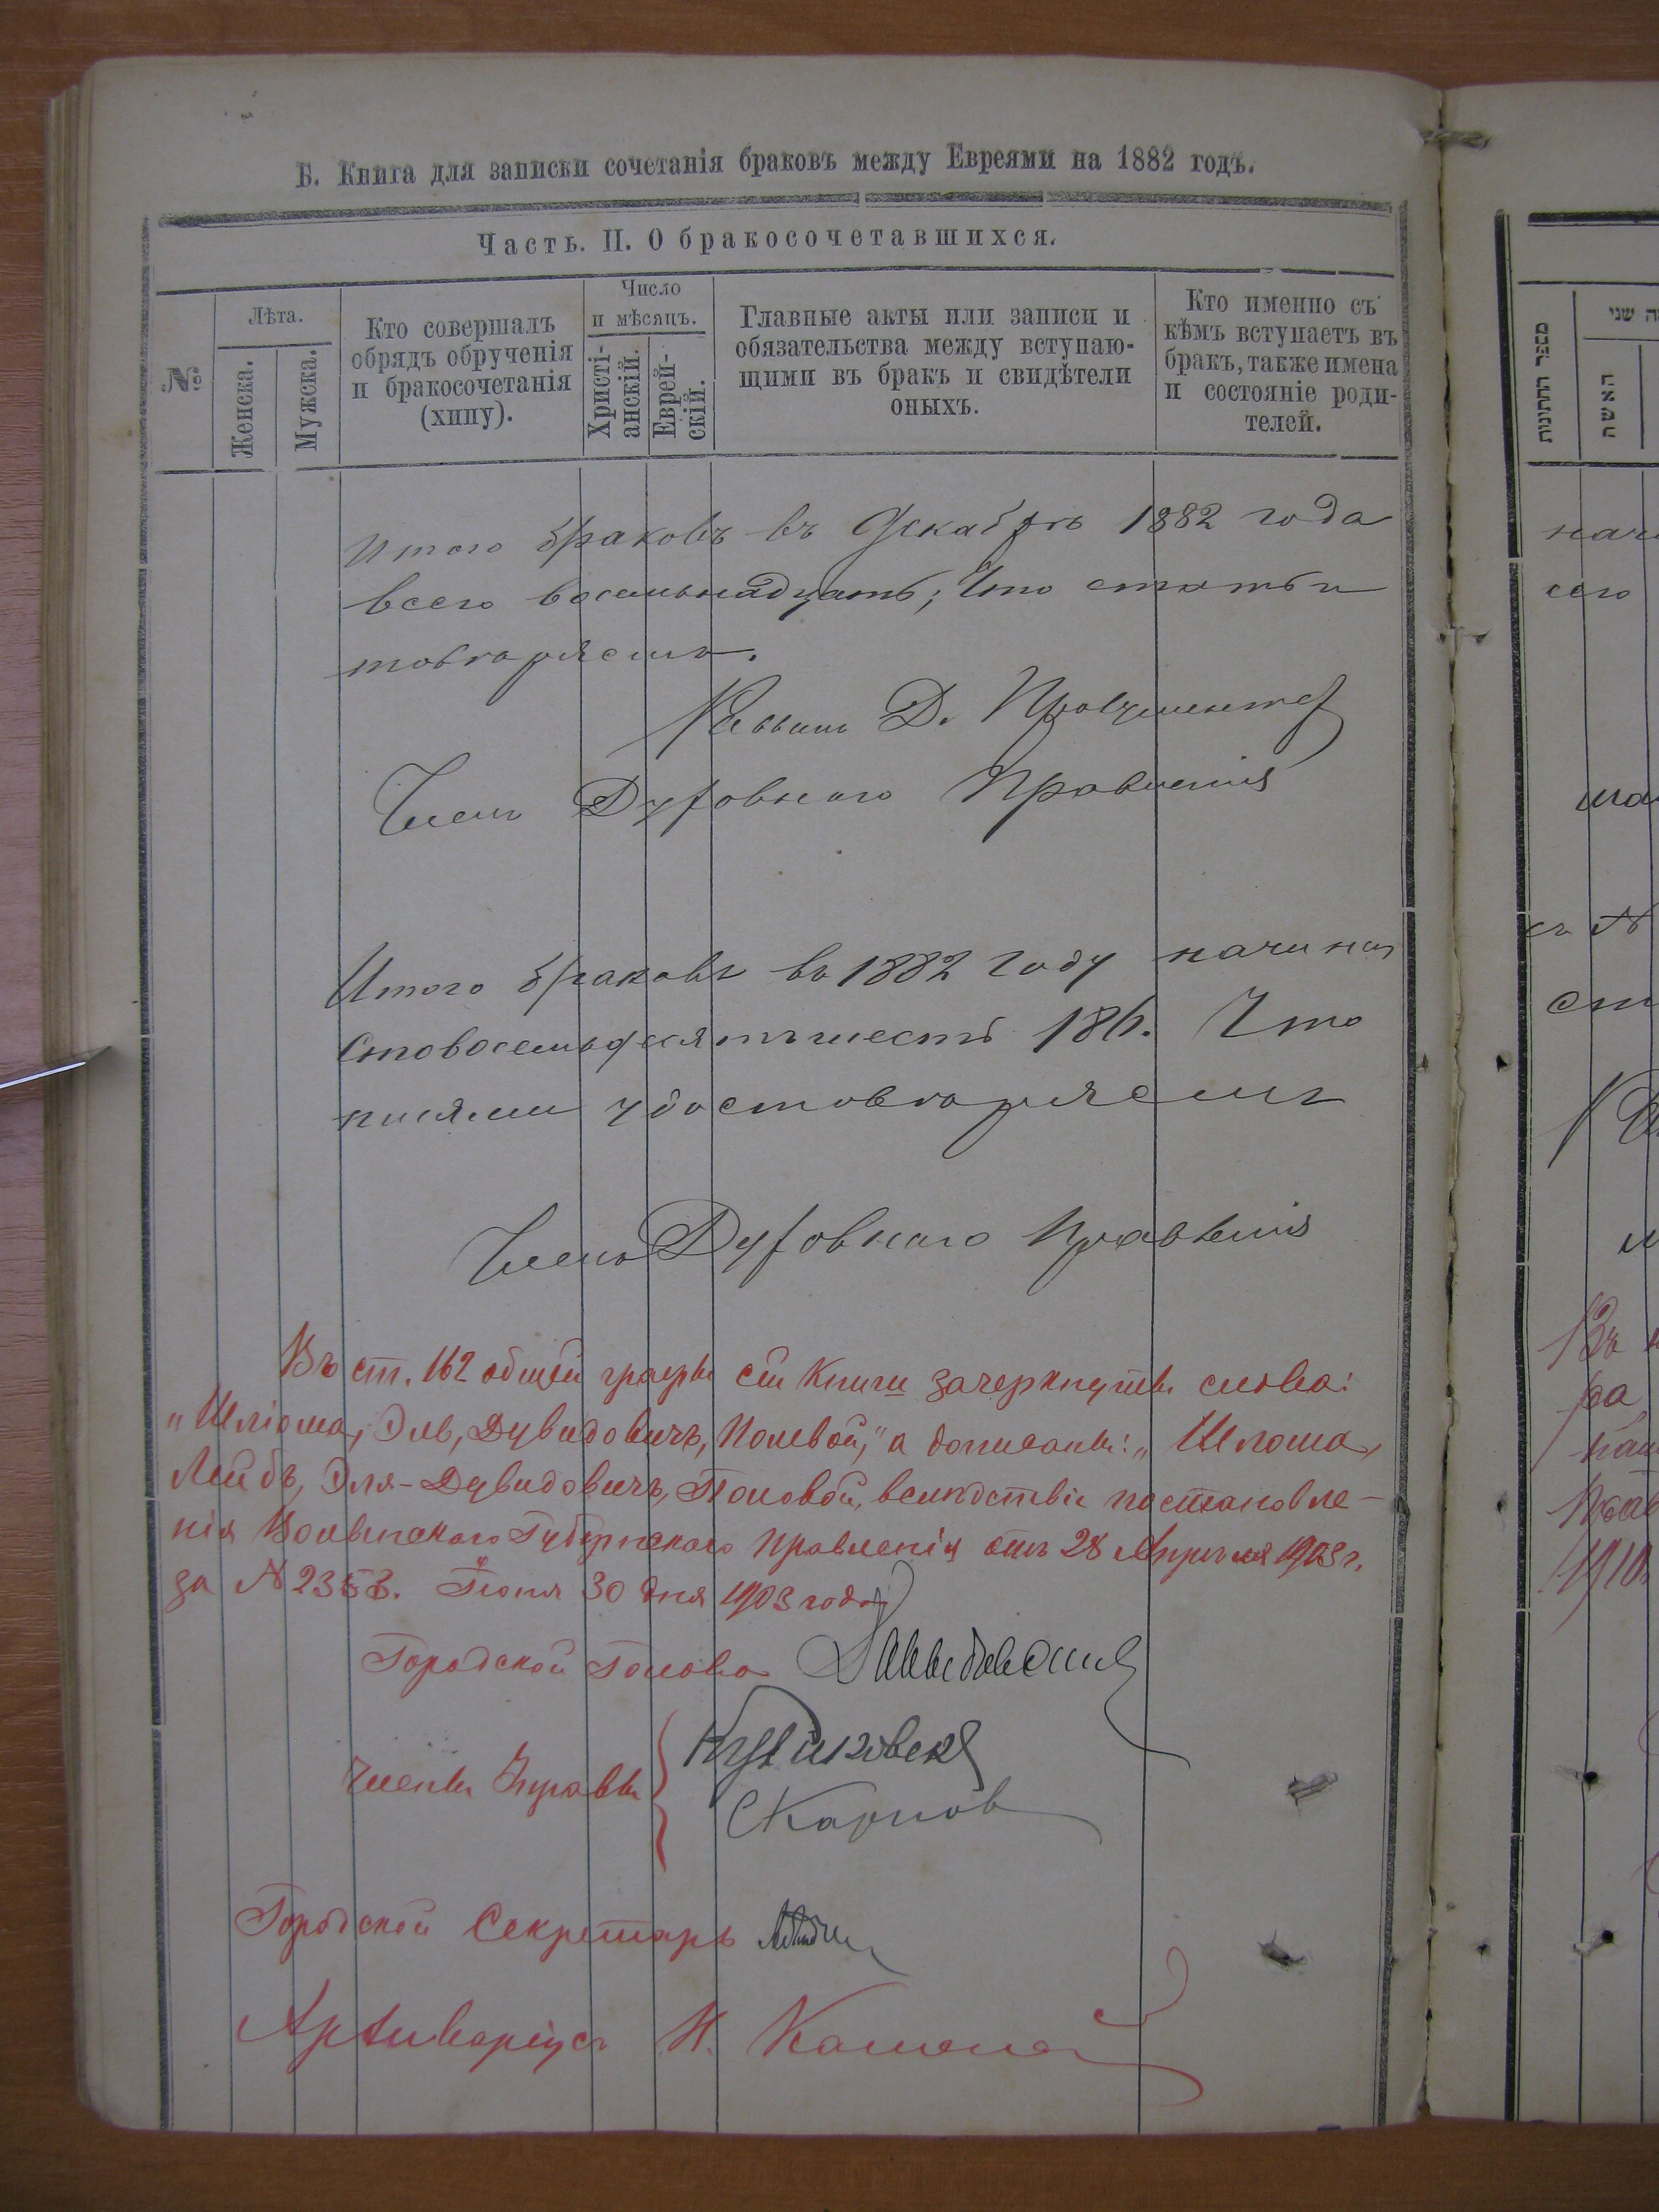 Б. Книга для записки сочетанія браковъ между Евреями на 1882 годъ.
Часть. II. О бракосочетавшихся.
№
Лѣта.
Женска.
Мужска.
Кто совершалъ
обрядъ обрученія
и бракосочетанія
(хипу).
Число
и мѣсяцъ.
Христі-
анскій.
Еврей-
скій.
Главные акты или записи и
обязательства между вступаю-
щими въ бракъ и свидѣтели
оныхъ.
Кто именно съ
кѣмъ вступаетъ въ
бракъ, также имена
и состояніе роди-
телей.
Итого браковъ въ Декабрѣ 1882 года
всего восемьнадцать; Что
товѣряемъ.
Раввинъ Д.
Членъ Духовнаго Правленія
Итого браковъ въ 1882 году начиная
Стовосемьдесятъшесть 186. Что
удостовѣряемъ
Членъ Духовнаго Правленія
Въ ст. 162 общей графы сей Книги зачеркнуты слова:
„Шліома, Эль, Дувидовичъ, Полевой," а дописаны: „Шлома,
Лейбъ, Эля-Дувидовичъ, Половой, вслѣдствіе постановле-
нія Волынскаго Губернскаго Правленія отъ 28 Апрѣля 1903 г.
за № Іюня 30 дня 1903 года
Городской Голова
Члены Управы
Карпов
Городской Секретарь
Архиваріусъ Н.
מספר החתונות
האשה
שני
сего
съ №
1910